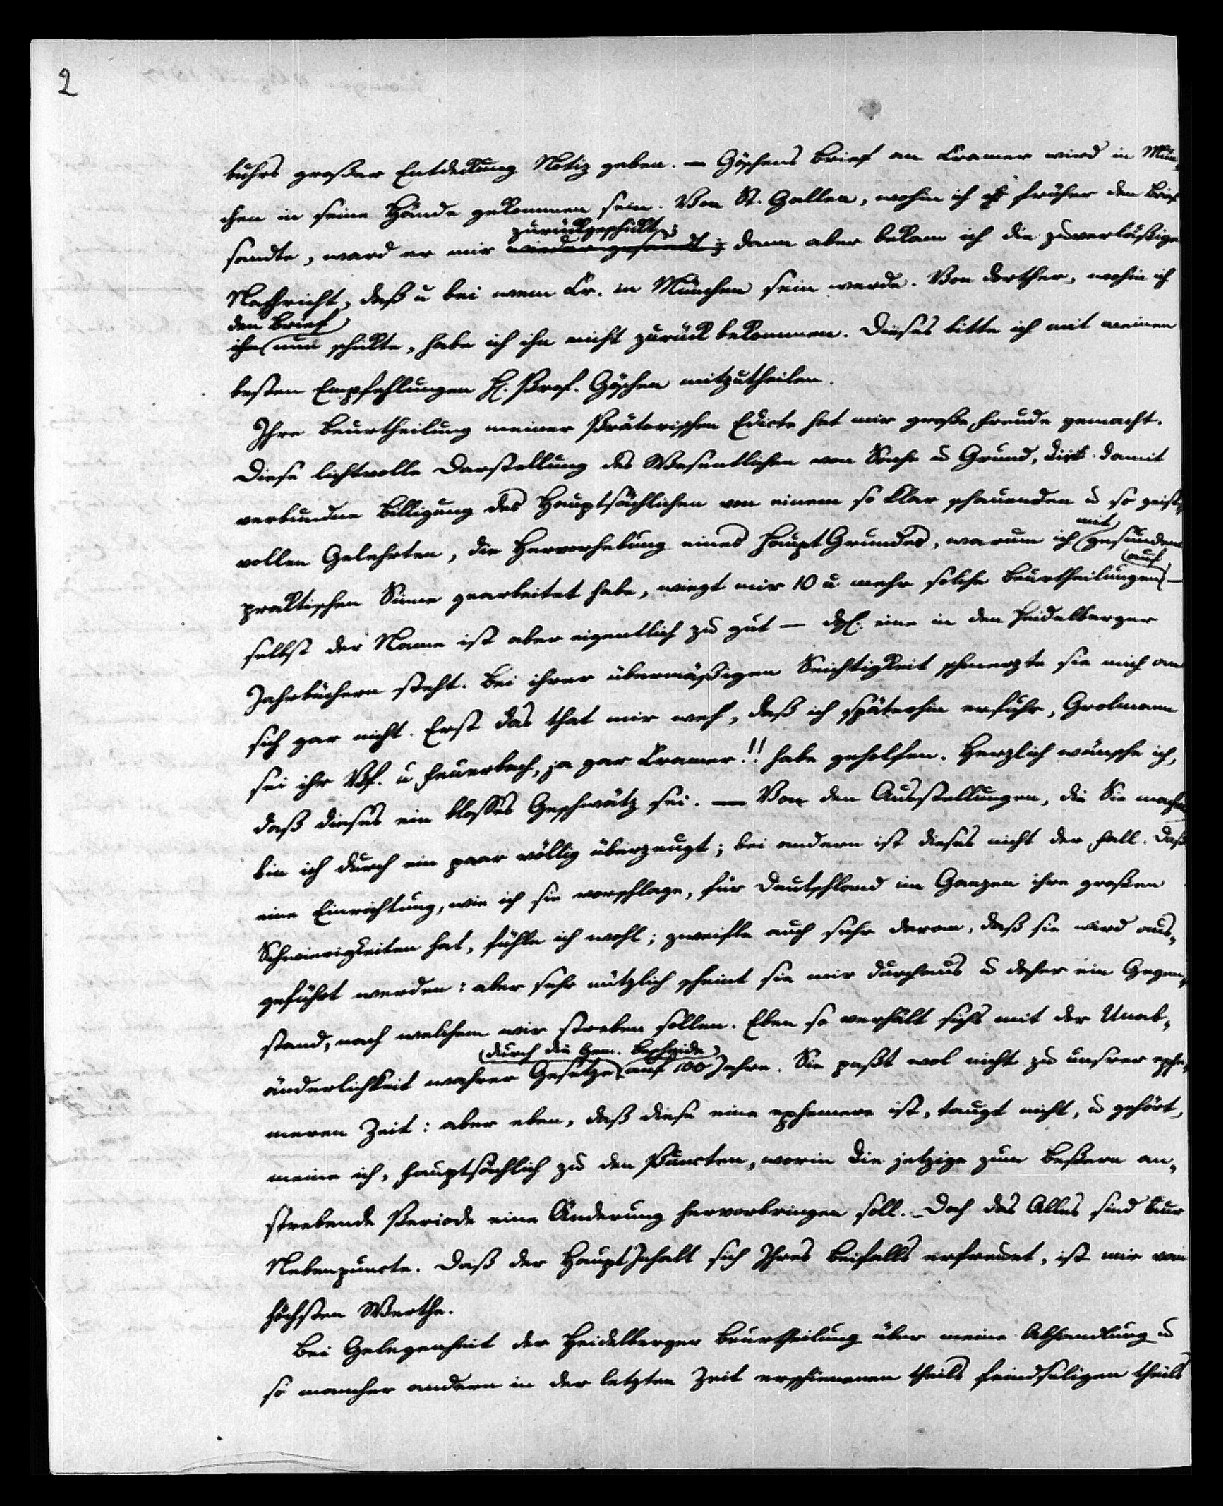 2
buhrs großer Entdekung Notiz geben. — Göschens Brief an Cramer wird in Mün-
chen in seine Hände gekommen sein. Von St. Gallen, wohin ich früher den Brief
zurückgeschikt;
sandte, ward er mir wiedergesandt; dann aber bekam ich die zuverläßige
Nachricht, daß u bei wem Cr. in München sein werde. Von dorther, wohin ich
den Brief
ihn nun schikte, habe ich ihn nicht zurük bekommen. Dieses bitte ich mit meinen
besten Empfehlungen H. Prof. Göschen mitzutheilen.
Ihre Beurtheilung meiner Prätorischen Edicte hat mir große Freude gemacht.
Diese lichtvolle Darstellung des Wesentlichen von Sache u Grund, die damit
verbundne Billigung des Hauptsächlichen von einem so klar schauenden u so geist-
mit
vollen Gelehrten, die Hervorhebung eines HauptGrundes, warum ich gesundem
auch
praktischen Sinne gearbeitet habe, wiegt mir 10 u mehr solche Beurtheilungen —
selbst der Name ist aber eigentlich zu gut — dgl. eine in den Heidelberger
Jahrbüchern steht. Bei ihrer übermäßigen Seichtigkeit schmerzte sie mich an
sich gar nicht. Erst das that mir weh, daß ich späterhin erfuhr, Grolmann
sei ihr Vf. u Feuerbach, ja gar Cramer!! habe geholfen. Herzlich wünsche ich,
daß dieses ein bloßes Geschwätz sei. — Von den Ausstellungen, die Sie machen
bin ich durch ein paar völlig überzeugt; bei andern ist dieses nicht der Fall. Daß
eine Einrichtung, wie ich sie vorschlage, für Deutschland im Ganzen ihre großen
Schwierigkeiten hat, fühle ich wohl; zweifle auch sehr daran, daß sie wird aus-
geführt werden: aber sehr nützlich scheint sie mir durchaus u daher ein Gegen-
stand, nach welchem wir streben sollen. Eben so verhält sichs mit der Unab-
durch die Gem. Bescheide
änderlichkeit wahrer Gesetze auf 100 Jahre. Sie paßt wol nicht zu unsrer ephe-
meren Zeit: aber eben, daß diese eine ephemere ist, taugt nicht, u gehört,
meine ich, hauptsächlich zu den Puncten, worin die jetzige zum Beßern an-
strebende Periode eine Änderung hervorbringen soll. — Doch das Alles sind nur
Nebenpuncte. Daß der HauptInhalt sich Ihres Beifalls erfreuet, ist mir vom
höchsten Werthe.
Bei Gelegenheit der Heidelberger Beurtheilung über meine Abhandlung u
so mancher andern in der letzten Zeit erschienenen theils feindseligen theils